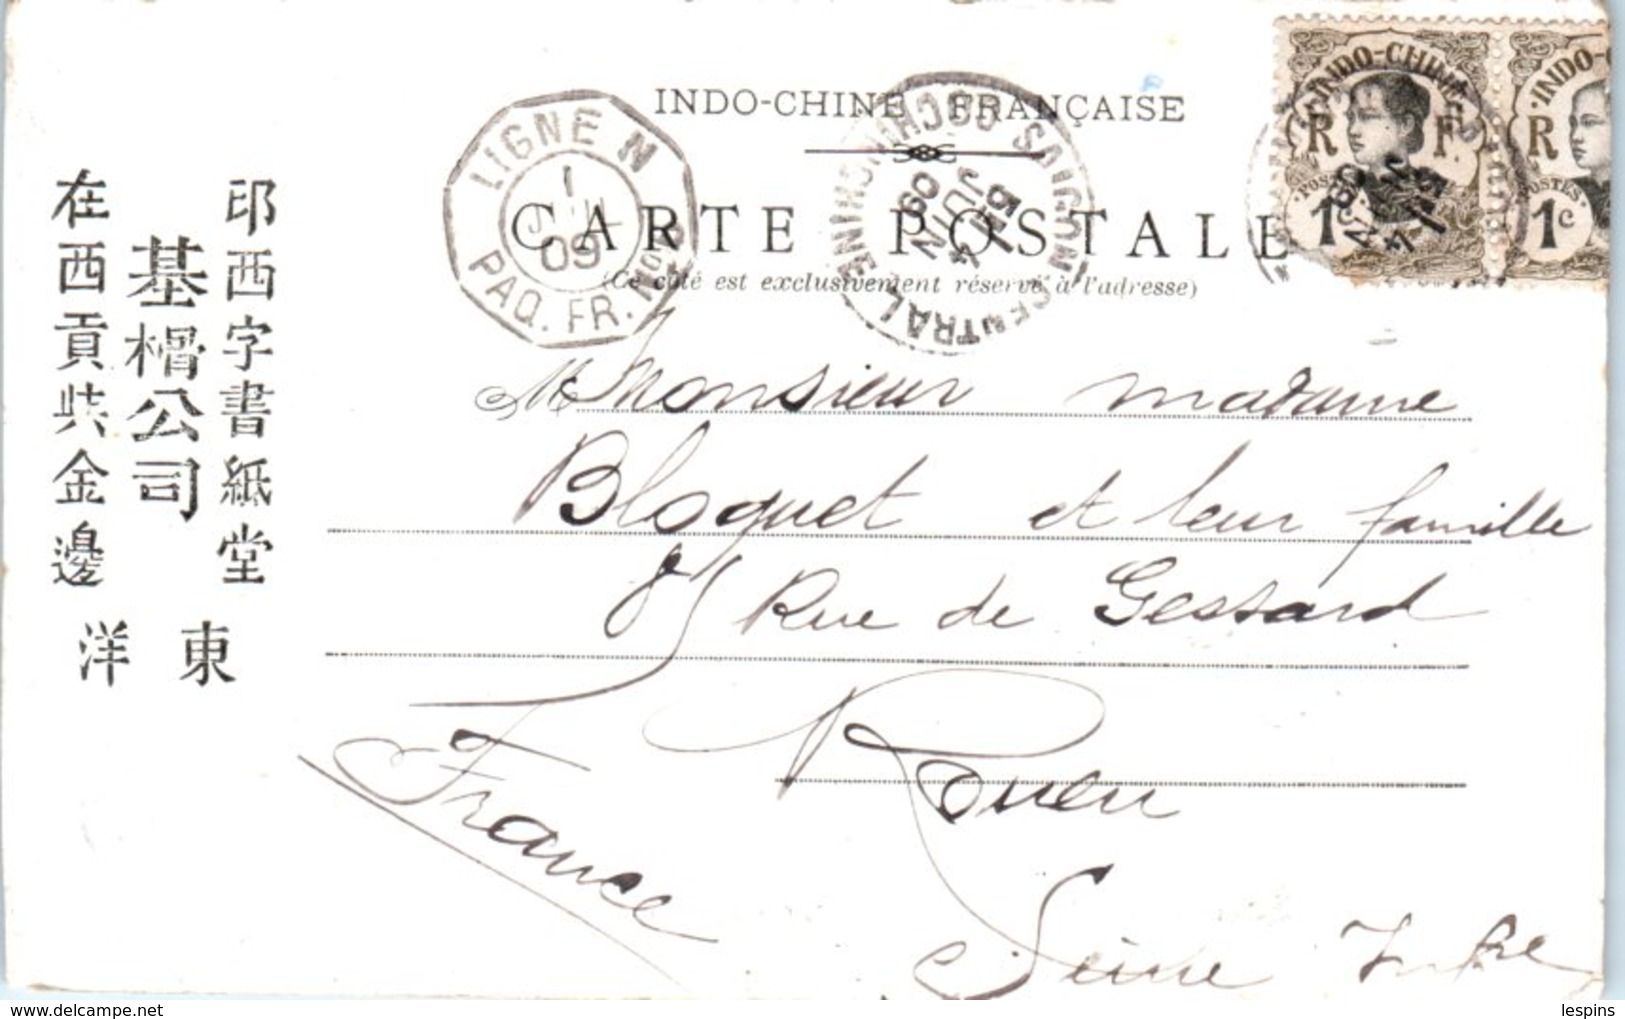 INDO-CHINE FRANÇAISE
CARTE POSTALE
(Ce côté est exclusivement réservé à l'adresse)
LIGNE N
1
JUIL
09
PAQ. FR. No
SAIGON CENTRAL
COCHINCHINE
5E
4
JUIN
09
INDO-CHINE
R F
POSTES
1c
INDO-C
R
POSTES
1c
印西字書紙堂
基櫑公司
在西貢共金邊
東洋
M Monsieur madame
Bloquet et leur famille
81 Rue de Gessard
Rouen
France
Seine Infre
lespins